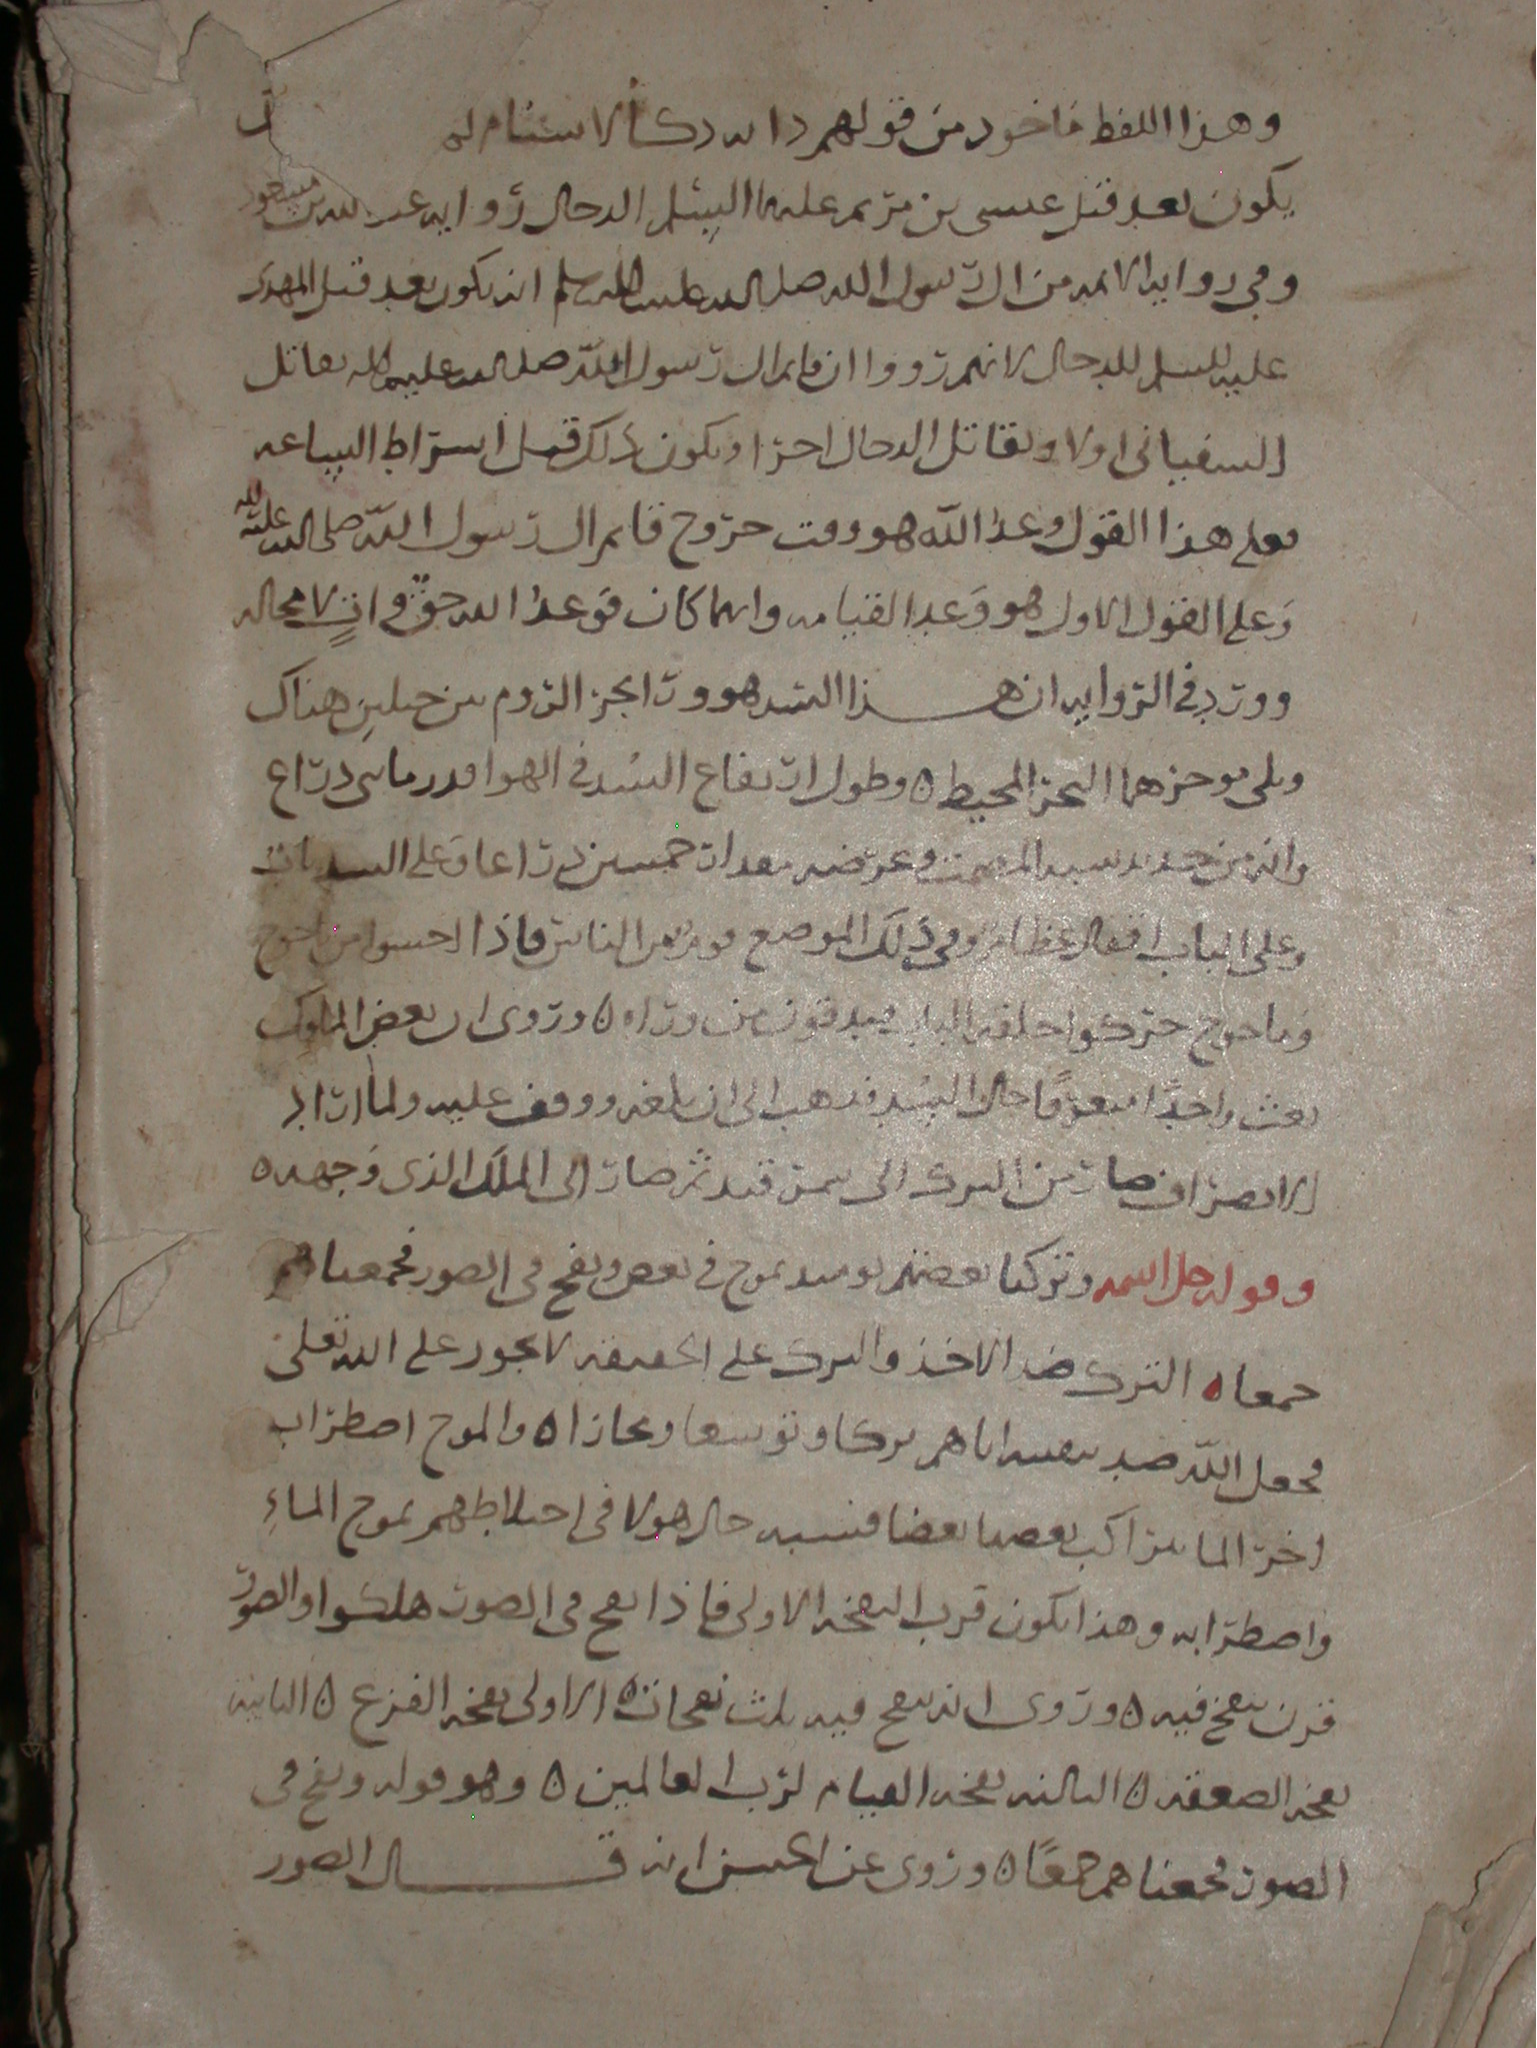 وهذا اللفظ ماخود من قولهم دابه دكا لا سنام لها
يكون بعد قتل عيسى بن مريم عليهما السلم الدجال رواه عبد الله بن مسعود
وفي رواية الائمه من ال رسول الله صلى الله عليه واله وسلم انه يكون بعد قتل المهدى
عليه السلم للدجال لانهم رووا ان قايم ال رسول الله صلى الله عليه واله يقاتل
السفياني اولا ويقاتل الدجال اخرا ويكون ذلك قبل اشراط الساعه
فعلى هذا القول وعد الله هو وقت خروج قايم ال رسول الله صلى الله عليه واله
وعلى القول الاول هو وعد القيامه وايهما كان فوعد الله حق وات لا محاله
وورد في الروايه ان هذا السد هو ورا بحر الروم بين جبلين هناك
ويلي موخرهما البحر المحيط ه وطول ارتفاع السد في الهوا قدر مايى ذراع
وانه من حديد شبه المصمت وعرضه مقدار خمسين ذراعا وعلى السد باب
وعلى الباب اقفال عظام وفي ذلك الموضع قوم من الناس فاذا احسوا من ياجوج
وماجوج حركوا حلقه الباب فيدقون من وراه ه وروى ان بعض الملوك
بعث واحدا ليعرف حال السد فذهب الى ان بلغه ووقف عليه ولما اراد
الانصراف صار من الترك الى سمرقند ثم صار الى الملك الذى وجهه ه
وقوله جل اسمه وتركنا بعضهم يوميد يموج في بعض ونفخ في الصور فجمعناهم
جمعا ه الترك ضد الاخذ والترك على الحقيقه لا يجوز على الله تعلى
فجعل الله ضد تبقيته اياهم تركا وتوسعا ومجازا ه والموج اضطراب
اخر الما بتراكب بعضها بعضا فشبه حال هولا في اختلاطهم بموج الماءِ
واضطرابه وهذا يكون قرب النفخه الاولى فاذا نفخ في الصور هلكوا والصور
قرن ينفخ فيه ه وروى انه ينفخ فيه ثلث نفخات ه الاولى نفخه الفزع ه الثانيه
نفخه الصعقه ه الثالثه نفخه القيام لرب العالمين ه وهو قوله ونفخ في
الصور فجمعناهم جمعًا ه وروى عن الحسن انه قال الصور